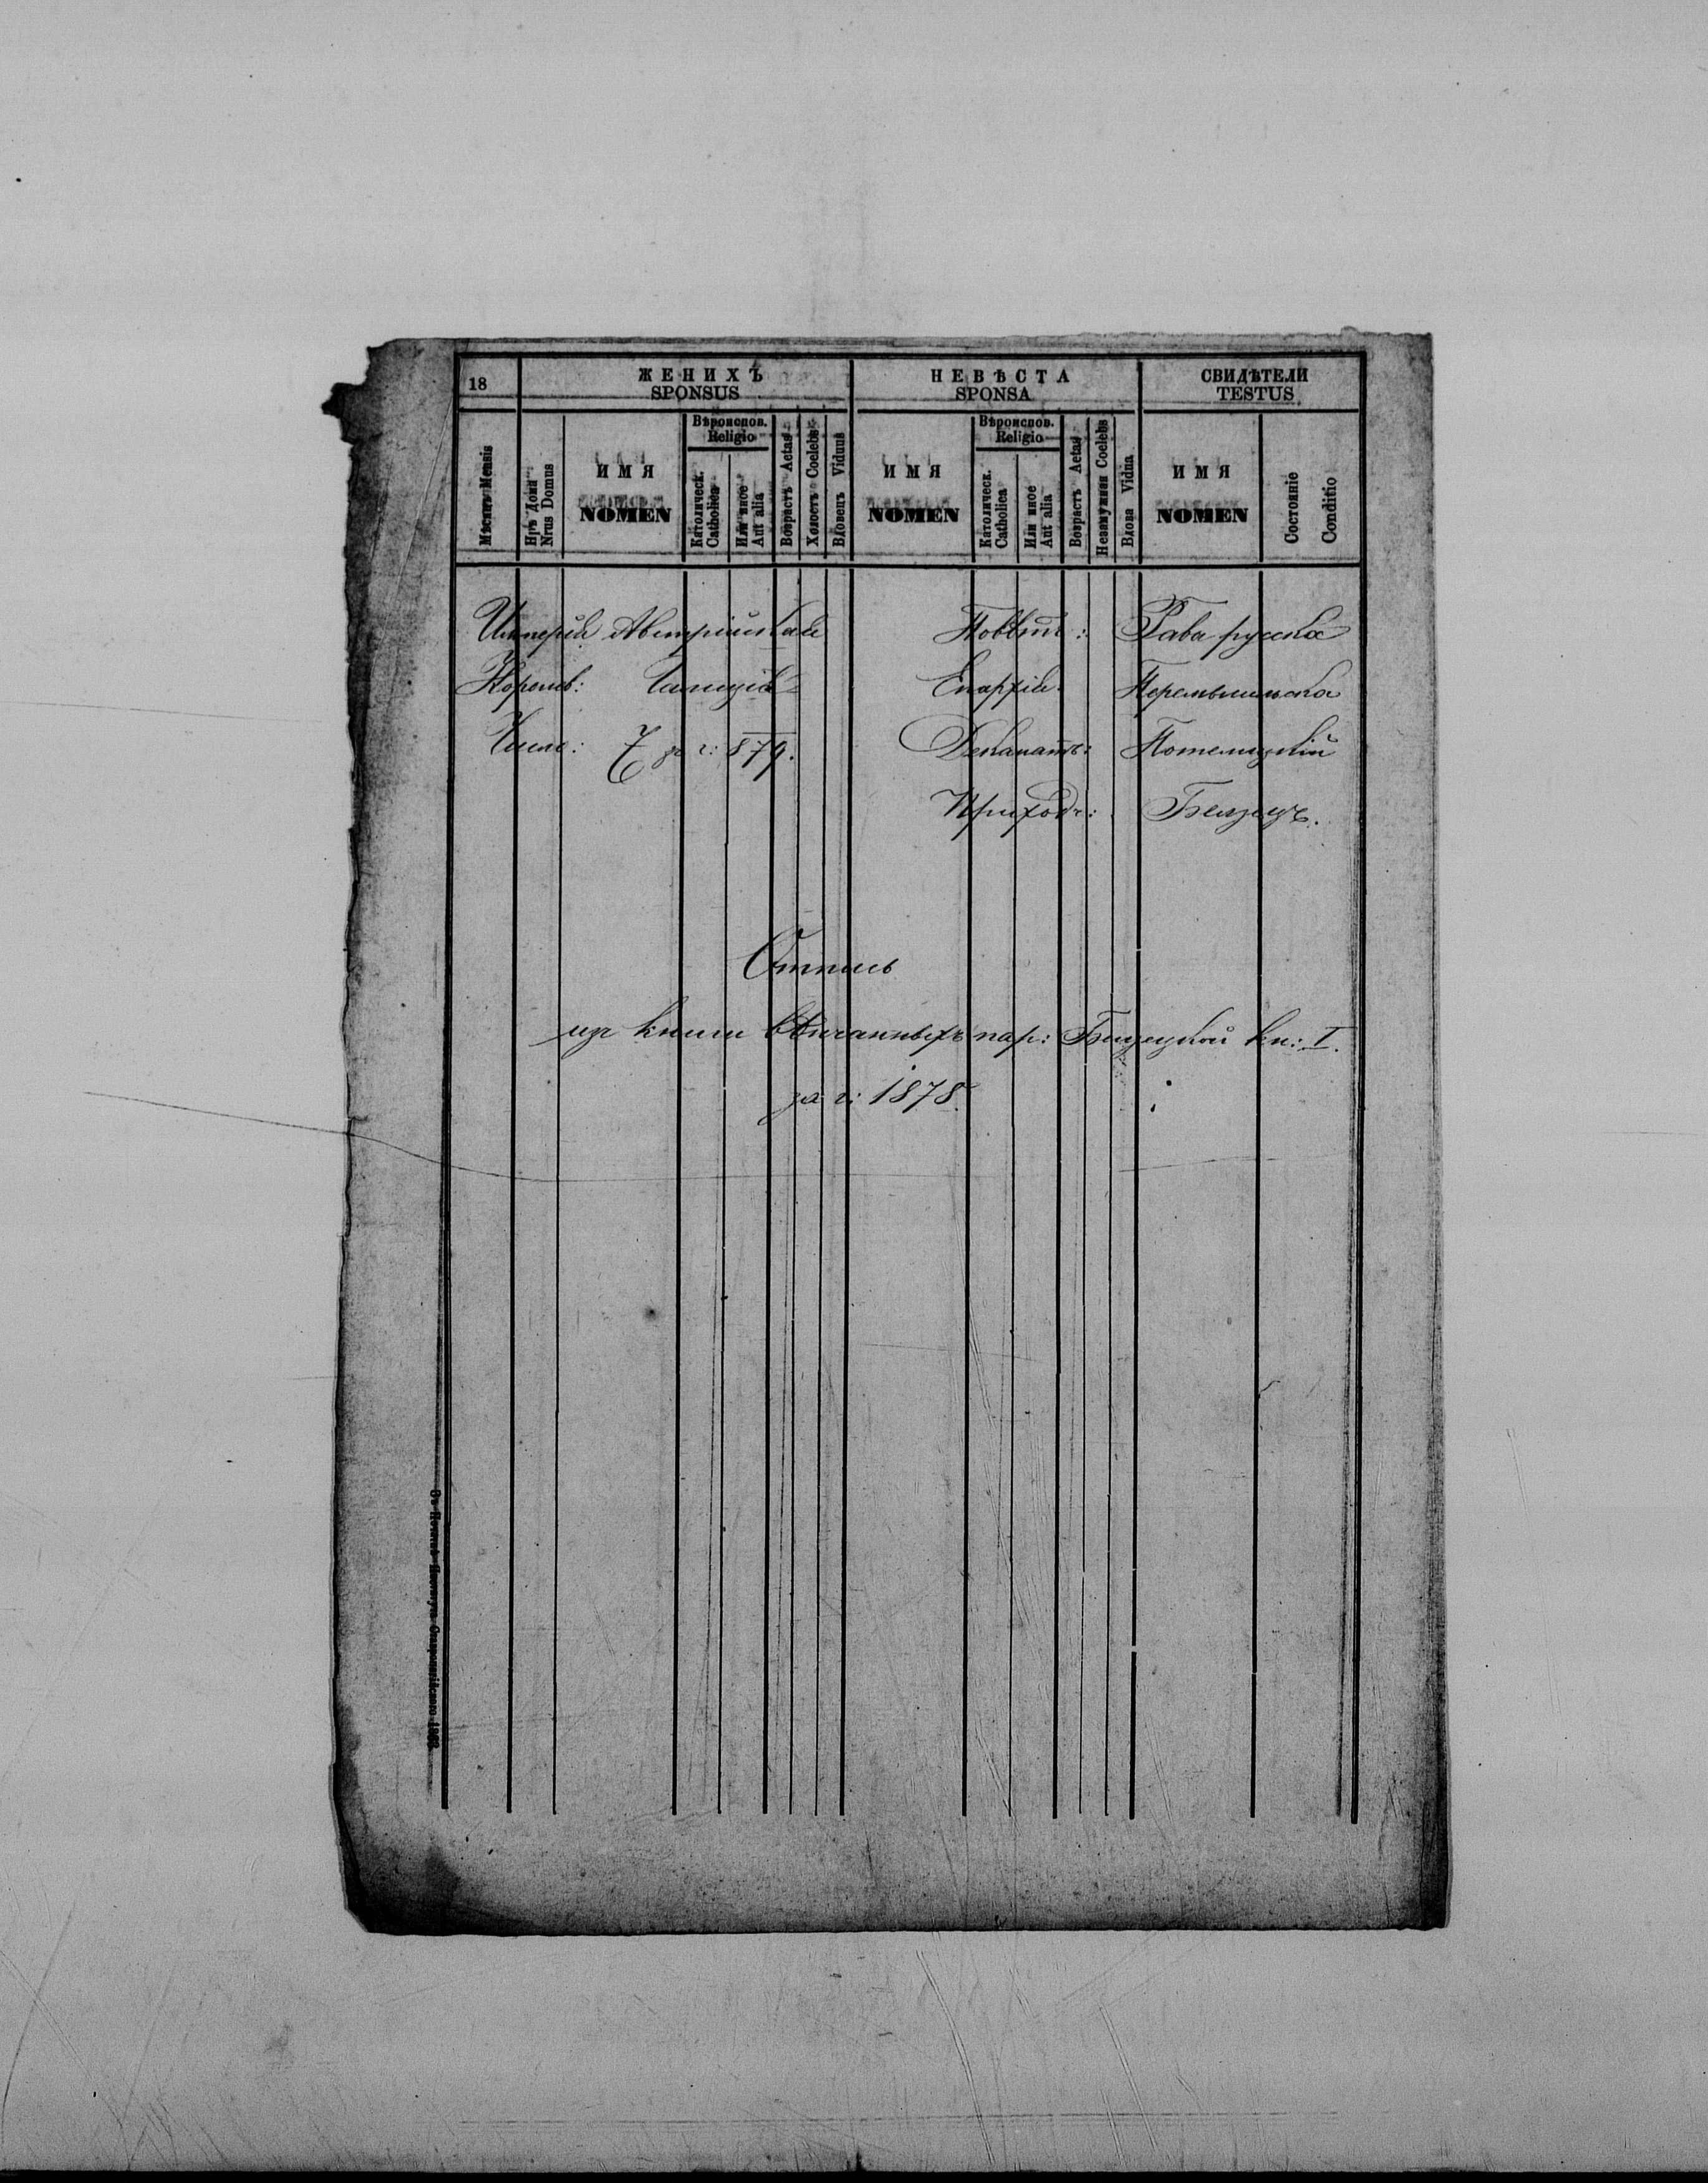 18 ЖЕНИХЪ НЕВѢСТА СВИДѢТЕЛИ
SPONSUS SPONSA TESTUS
Мѣсяцъ Mensis
Нръ Дома
Nrus Domus
ИМЯ
NOMEN
Вѣроиспов.
Religio
Католическ.
Catholica
Или иное
Aut alia
Возрастъ Aetas
Холостъ Coelebs
Вдовецъ Viduus
ИМЯ
NOMEN
Вѣроиспов.
Religio
Католическ.
Catholica
Или иное
Aut alia
Возрастъ Aetas
Незамужная Coelebs
Вдова Vidua
ИМЯ
NOMEN
Состояніе
Conditio
Имперія Австрійская Повѣтъ: Рава русска
Королев: Галиція Епархія Перемышльска
Число: 7 за г: 879. Деканатъ: Потелицкій
Приходъ: Белзецъ.
Отпись
изъ книги вѣнчанныхъ пар: Белзецкой кн: I.
за г: 1878.